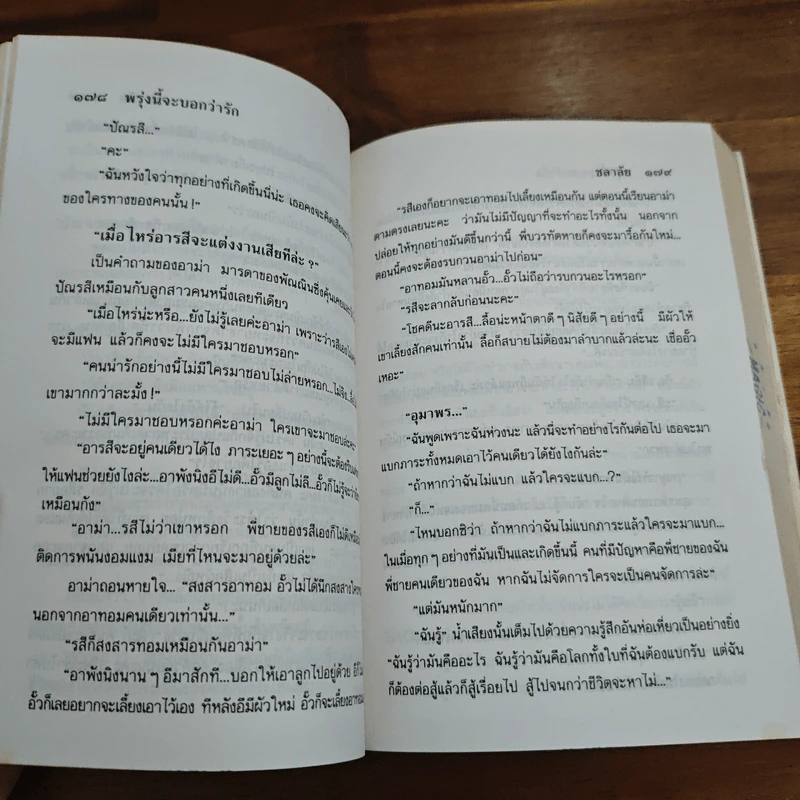 ๑๗๘ พรุ่งนี้จะบอกว่ารัก
“ปัณรสี...”
“คะ”
“ฉันหวังใจว่าทุกอย่างที่เกิดขึ้นนี่น่ะ เธอคงจะคิดเสียนะว่า
ของใครทางของคนนั้น!”
“เมื่อไหร่อารสีจะแต่งงานเสียทีล่ะ?”
เป็นคำถามของอาม่า มารดาของพัณณินซึ่งคุ้นเคย
ปัณรสีเหมือนกับลูกสาวคนหนึ่งเลยทีเดียว
“เมื่อไหร่น่ะหรือ...ยังไม่รู้เลยค่ะอาม่า เพราะว่ารสีเอง
จะมีแฟน แล้วก็คงจะไม่มีใครมาชอบหรอก”
“คนน่ารักอย่างนี้ไม่มีใครมาชอบไม่ล่ายหรอก...ไม่จริง
เขามากกว่าละมั้ง!”
“ไม่มีใครมาชอบหรอกค่ะอาม่า ใครเขาจะมาชอบล่ะคะ”
“อารสีจะอยู่คนเดียวได้ไง ภาระเยอะๆ อย่างนี้จะต้อง
ให้แฟนช่วยยังไงล่ะ...อาพังนิงอีไม่ดี...อั๊วมีลูกไม่ลี...อั๊วก็ไม่รู้จะว่า
เหมือนกัง”
“อาม่า...รสีไม่ว่าเขาหรอก พี่ชายของรสีเองก็ไม่ดี
ติดการพนันงอมแงม เมียที่ไหนจะมาอยู่ด้วยล่ะ”
อาม่าถอนหายใจ... “สงสารอาทอม อั๊วไม่ได้นึกสงสารใคร
นอกจากอาทอมคนเดียวเท่านั้น...”
“รสีก็สงสารทอมเหมือนกันอาม่า”
“อาพังนิงนานๆ อีมาสักที...บอกให้เอาลูกไปอยู่ด้วย
อั๊วก็เลยอยากจะเลี้ยงเอาไว้เอง ทีหลังอีมีผัวใหม่ อั๊วก็จะเลี้ยงอาทอม
ชลาลัย ๑๗๙
“รสีเองก็อยากจะเอาทอมไปเลี้ยงเหมือนกัน แต่ตอนนี้เรียนอาม่า
ตามตรงเลยนะคะ ว่ามันไม่มีปัญญาที่จะทำอะไรทั้งนั้น นอกจาก
ปล่อยให้ทุกอย่างมันดีขึ้นกว่านี้ พี่บวรทัตหายก็คงจะมารื้อกันใหม่...
ตอนนี้คงจะต้องรบกวนอาม่าไปก่อน”
“อาทอมมันหลานอั๊ว...อั๊วไม่ถือว่ารบกวนอะไรหรอก”
“รสีจะลากลับก่อนนะคะ”
“โชคดีนะอารสี...ลื้อน่ะหน้าตาดีๆ นิสัยดีๆ อย่างนี้ มีผัวให้
เขาเลี้ยงสักคนเท่านั้น ลื้อก็สบายไม่ต้องมาลำบากแล้วล่ะนะ เชื่ออั๊ว
เหอะ”
“อุมาพร...”
“ฉันพูดเพราะฉันห่วงนะ แล้วนี่จะทำอย่างไรกันต่อไป เธอจะมา
แบกภาระทั้งหมดเอาไว้คนเดียวได้ยังไงกันล่ะ”
“ถ้าหากว่าฉันไม่แบก แล้วใครจะแบก...?”
“ก็...”
“ไหนบอกซิว่า ถ้าหากว่าฉันไม่แบกภาระแล้วใครจะมาแบก...
ในเมื่อทุกๆ อย่างที่มันเป็นและเกิดขึ้นนี้ คนที่มีปัญหาคือพี่ชายของฉัน
พี่ชายคนเดียวของฉัน หากฉันไม่จัดการใครจะเป็นคนจัดการล่ะ”
“แต่มันหนักมาก”
“ฉันรู้” น้ำเสียงนั้นเต็มไปด้วยความรู้สึกอันห่อเหี่ยวเป็นอย่างยิ่ง
“ฉันรู้ว่ามันคืออะไร ฉันรู้ว่ามันคือโลกทั้งใบที่ฉันต้องแบกรับ แต่ฉัน
ก็ต้องต่อสู้แล้วก็สู้เรื่อยไป สู้ไปจนกว่าชีวิตจะหาไม่...”